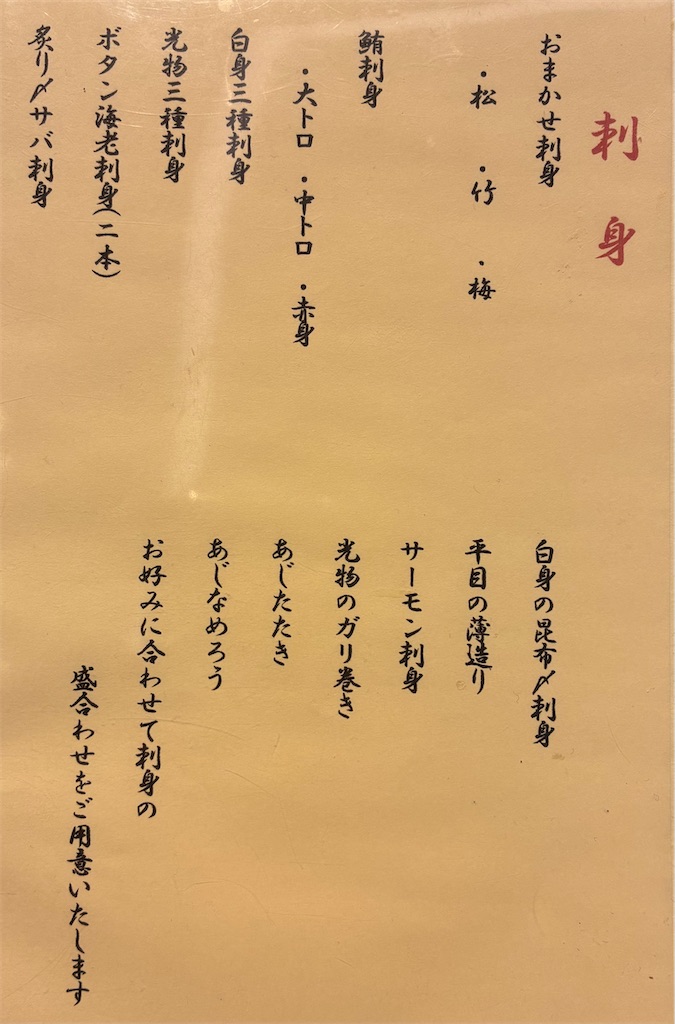 刺身
おまかせ刺身
・松 ・竹 ・梅
鮪刺身
・大トロ ・中トロ ・赤身
白身三種刺身
光物三種刺身
ボタン海老刺身(二本)
炙り〆サバ刺身
白身の昆布〆刺身
平目の薄造り
サーモン刺身
光物のガリ巻き
あじたたき
あじなめろう
お好みに合わせて刺身の
盛合わせをご用意いたします